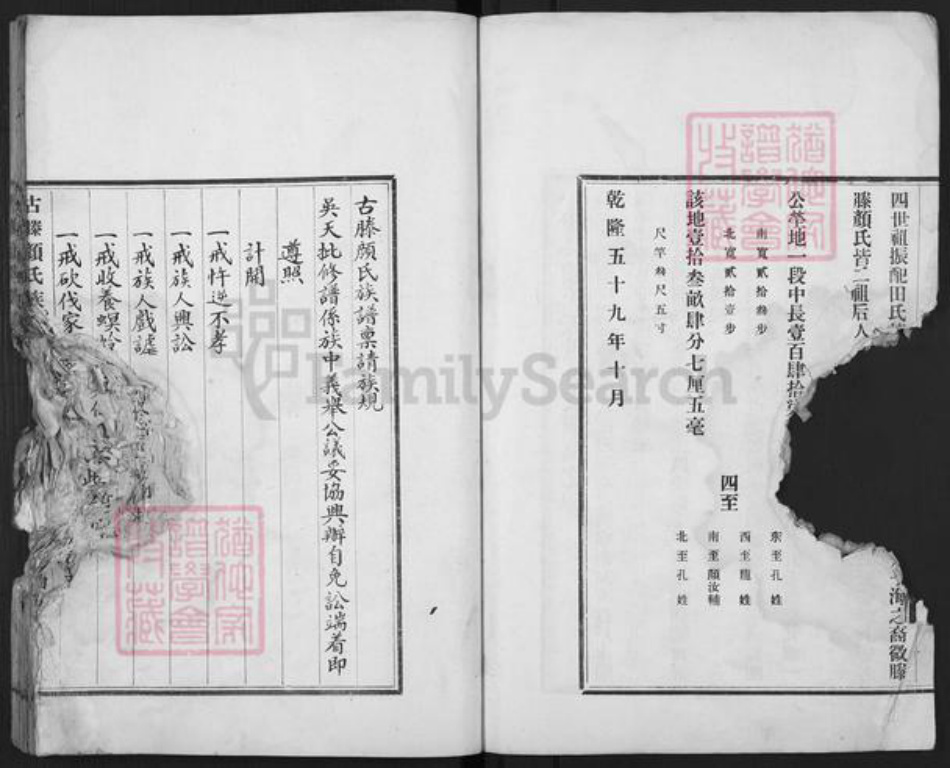 四世祖振配田氏
海之裔徵滕
滕顏氏皆二祖后人
公塋地一段中長壹百肆拾
南寬貳拾叁步
北寬貳拾壹步
該地壹拾叁畝肆分七厘五毫
尺竿叁尺五寸
四至
东至孔姓
西至龍姓
南至顏汝輔
北至孔姓
乾隆五十九年十月
古滕顏氏族譜禀請族規
吳天批修譜係族中義舉公議妥協興辦自免訟端着即
遵照
計開
一戒忤逆不孝
一戒族人興訟
一戒族人戲謔
一戒收養螟蛉
一戒砍伐家
古滕顏氏族
FamilySearch
譜學會
收藏
譜學會
收藏